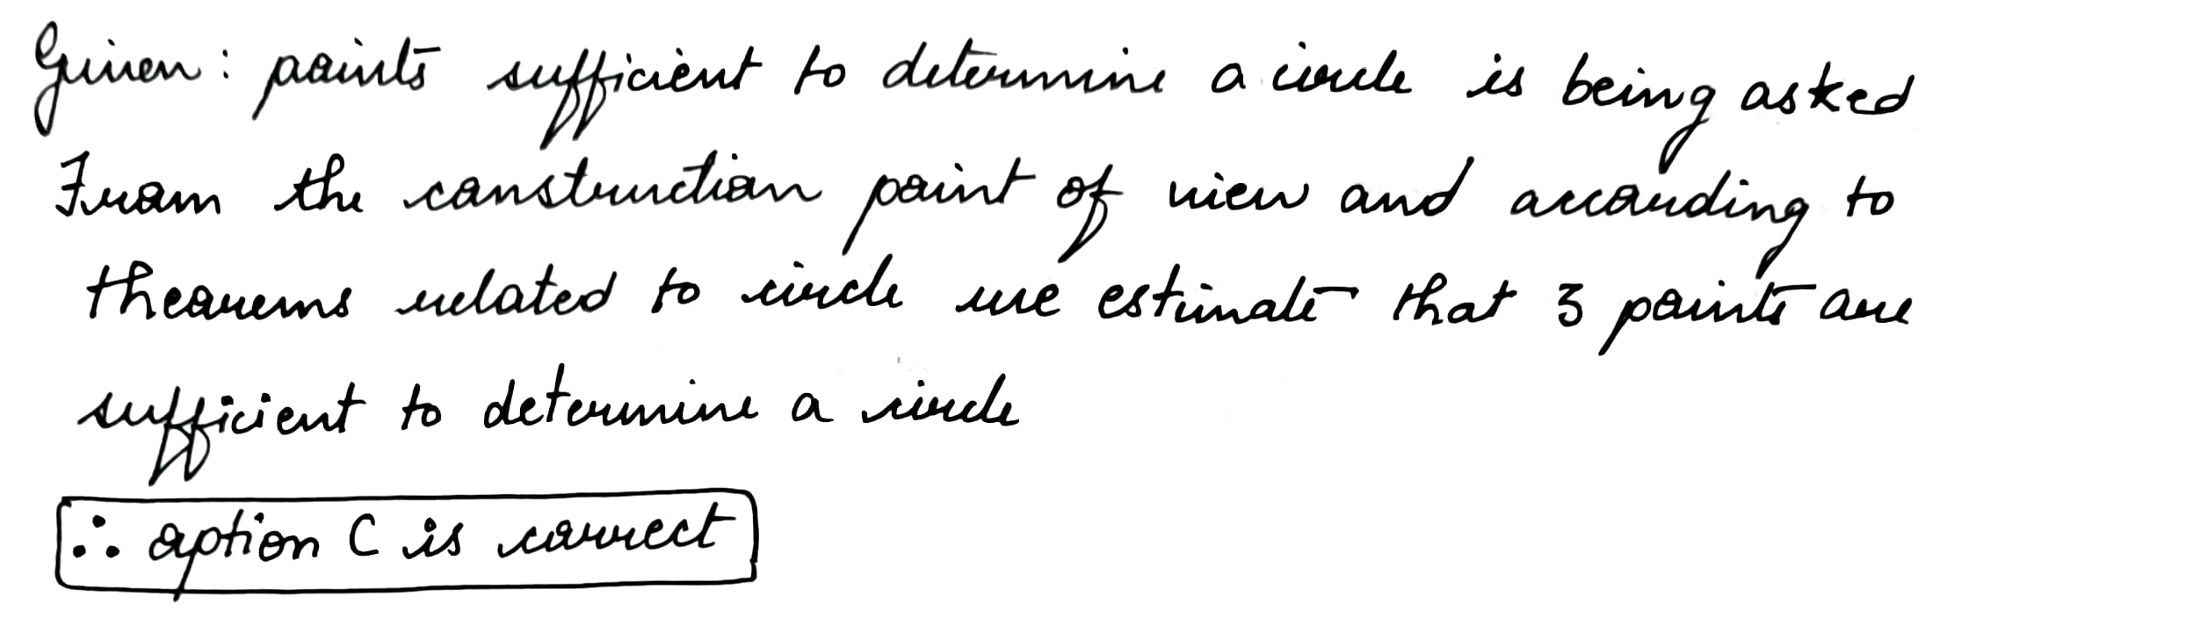 Given : points sufficient to determine a circle is being asked
From the construction point of view and according to
theorems related to circle we estimate that 3 points are
sufficient to determine a circle
∴ option C is correct